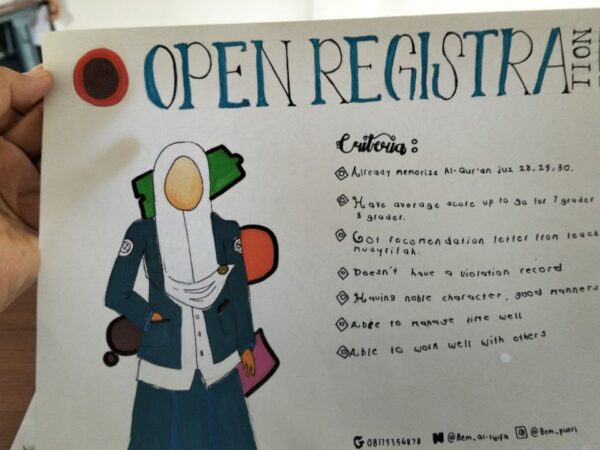 OPEN REGISTRATION
Criteria :
Already memorize Al-Qur'an juz 28, 29, 30.
Have average score up to 90 for 7 grader
8 grader.
Got recomendation letter from teach
Musyrifah.
Doesn't have a violation record
Having noble character, good manners
Able to manage time well
Able to work well with others
08175356878 @Bem_al-syifa @Bem_putri